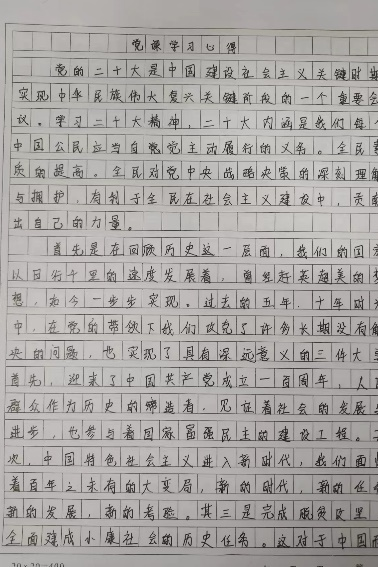 党课学习心得
党的二十大是中国建设社会主义关键时期
实现中华民族伟大复兴关键阶段的一个重要会
议。学习二十大精神，二十大内涵是我们每个
中国公民应当自觉党主动履行的义务。全民素
质的提高。全民对党中央战略决策的深刻理解
与拥护，有利于全民在社会主义建设中，贡献
出自己的力量。
首先是在回顾历史这一层面，我们的国家
以日行千里的速度发展着，曾经赶英超美的梦
想，如今一步步实现。过去的五年，十年时光
中，在党的带领下我们攻克了许多长期没有解
决的问题，也实现了具有深远意义的三件大事
首先，迎来了中国共产党成立一百周年，人民
群众作为历史的缔造者，见证着社会的发展与
进步，也参与着国家富强民主的建设工程。其
次，中国特色社会主义进入新时代，我们面临
着百年之未有的大变局，新的时代，新的任务
新的发展，新的考验。其三是完成脱贫
全面建成小康社会的历史任务。这对于中国而
20×20=400